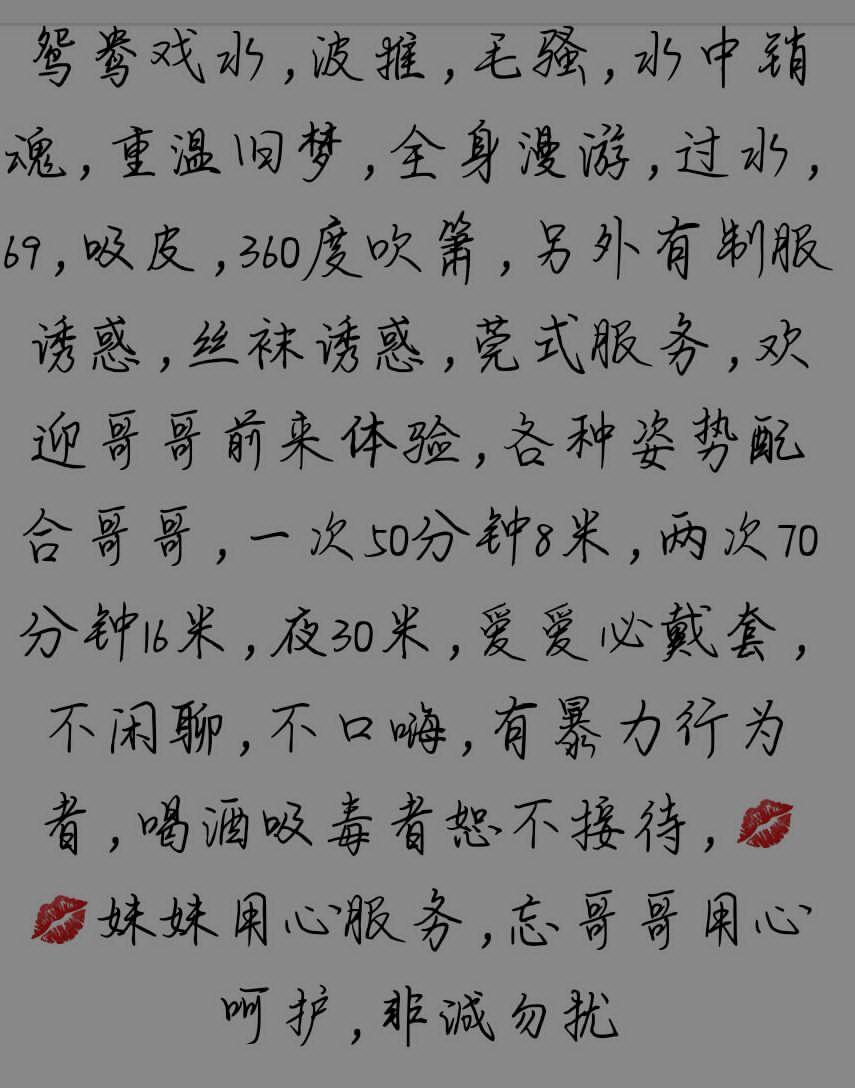 鸳鸯戏水,波推,毛骚,水中销
魂,重温旧梦,全身漫游,过水,
69,吸皮,360度吹箫,另外有制服
诱惑,丝袜诱惑,莞式服务,欢
迎哥哥前来体验,各种姿势配
合哥哥,一次50分钟8米,两次70
分钟16米,夜30米,爱爱必戴套,
不闲聊,不口嗨,有暴力行为
者,喝酒吸毒者恕不接待,💋
💋妹妹用心服务,忘哥哥用心
呵护,非诚勿扰